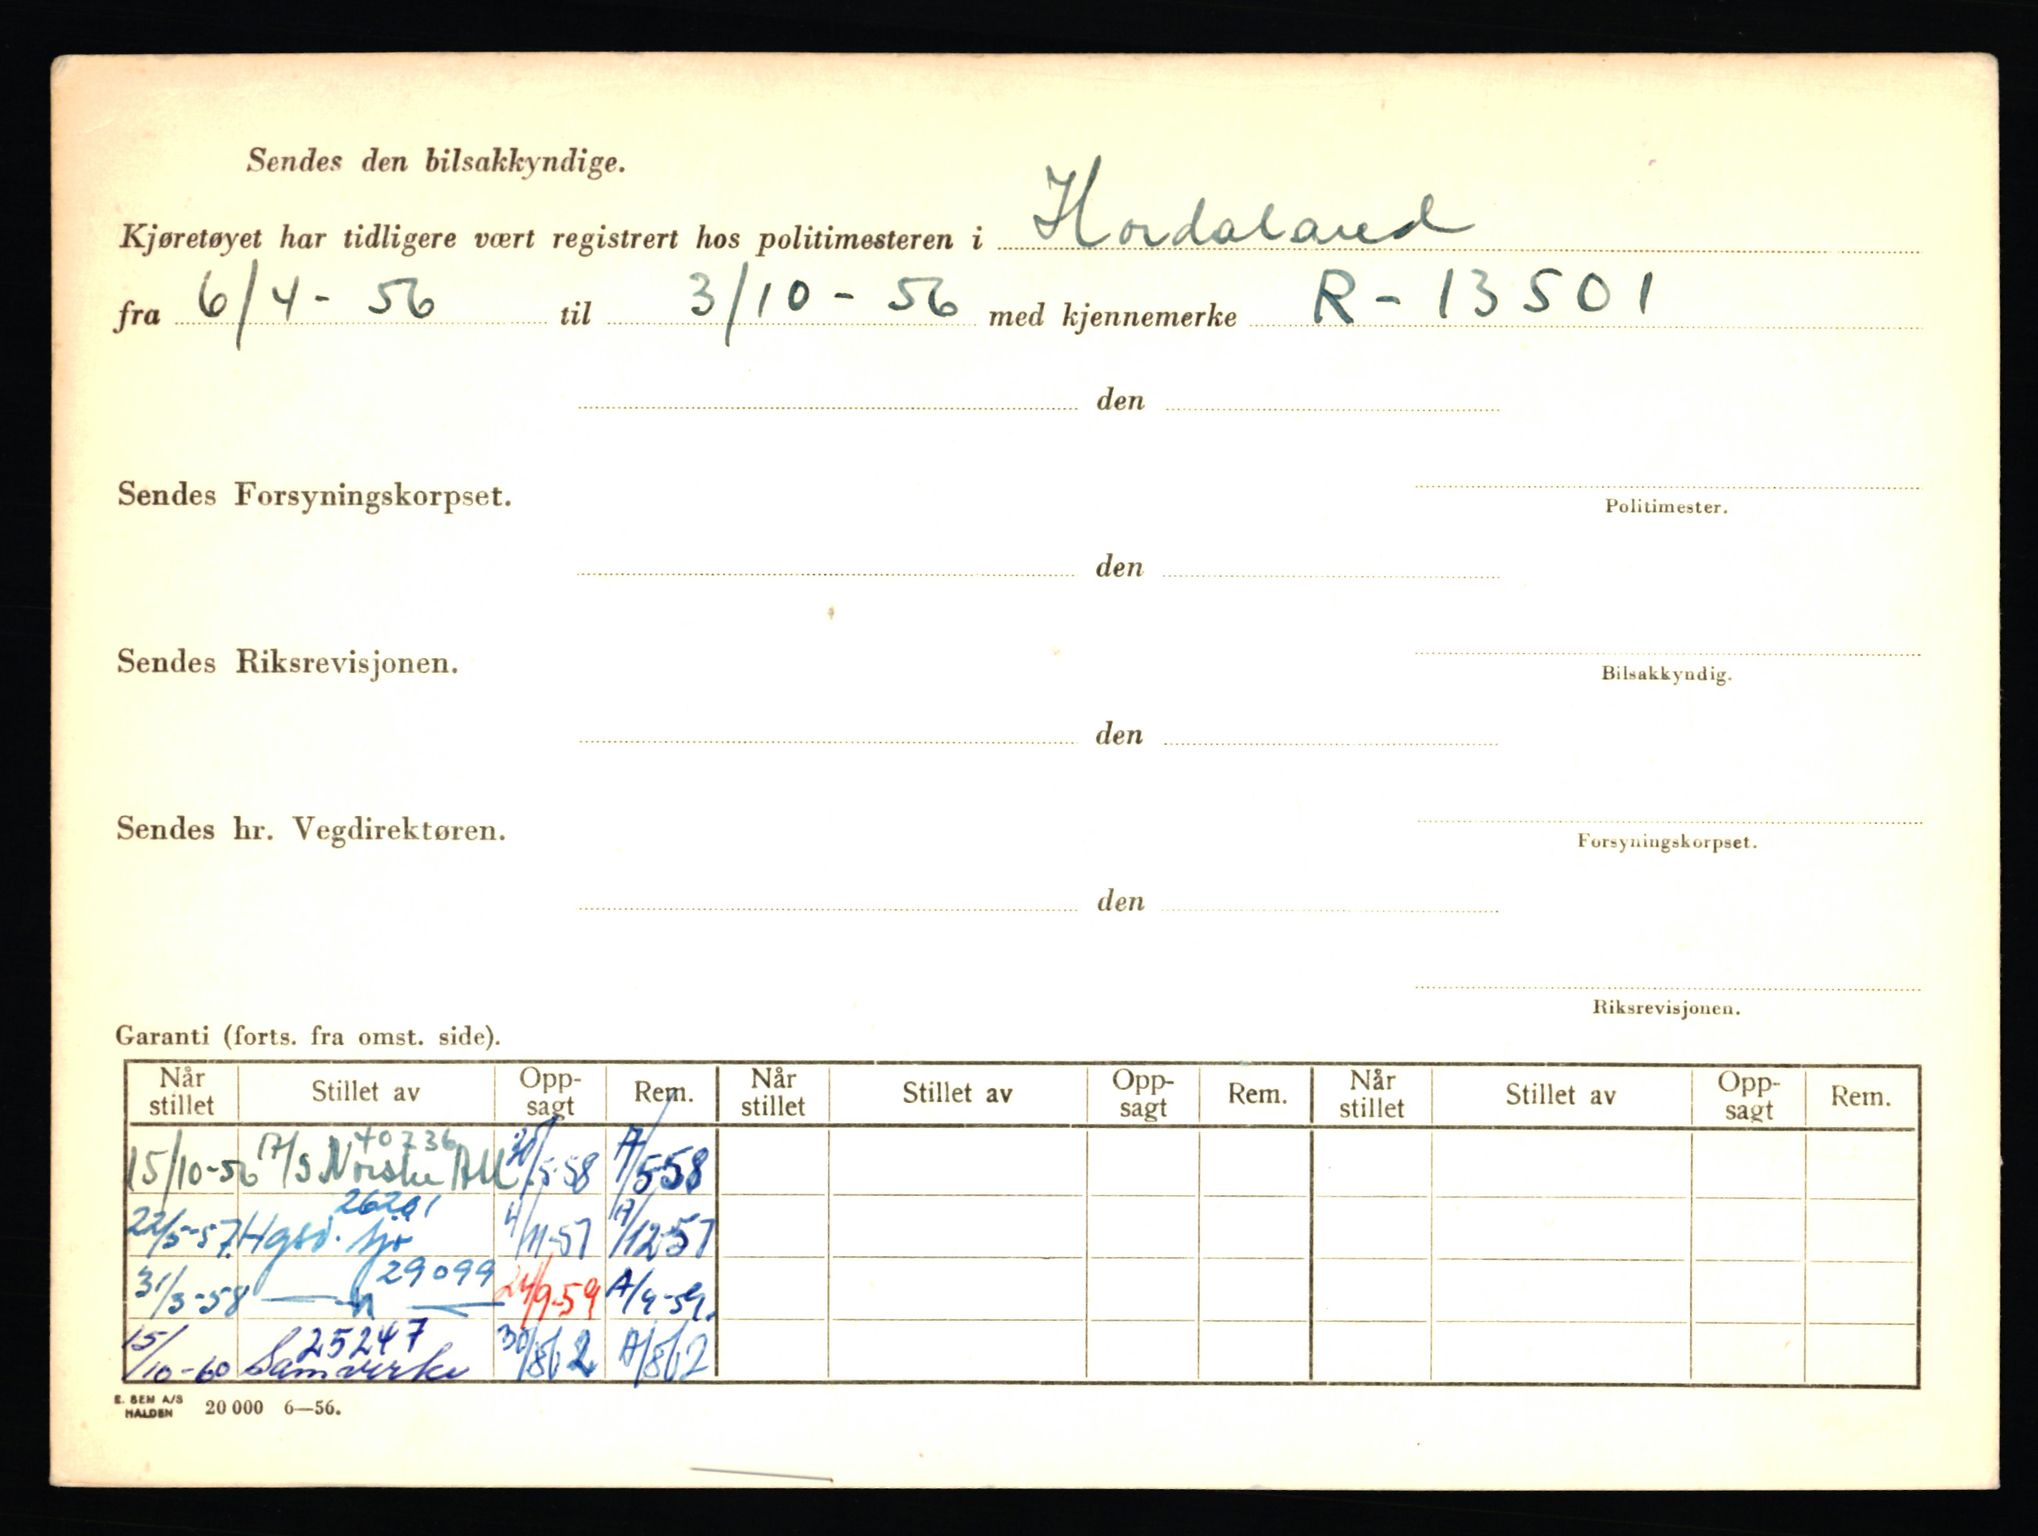 Sendes den bilsakkyndige.
Kjøretøyet har tidligere vært registrert hos politimesteren i Hordaland
fra 6/4-56 til 3/10-56 med kjennemerke R-13501
den
Sendes Forsyningskorpset.
Politimester.
den
Sendes Riksrevisjonen.
Bilsakkyndig.
den
Sendes hr. Vegdirektøren.
Forsyningskorpset.
den
Riksrevisjonen.
Garanti (forts. fra omst. side).
Når stillet Stillet av Opp-sagt Rem. Når stillet Stillet av Opp-sagt Rem. Når stillet Stillet av Opp-sagt Rem.
40736
15/10-56 Norske /5-58 /5 58
22/5-57 4/11-57 /12-57
29099
31/3-58 —"— 24/9-59 A/9-59.
25247
15/10-60 Samvirke 30/8 62 A/8 62
E. SEM A/S
HALDEN 20 000 6—56.